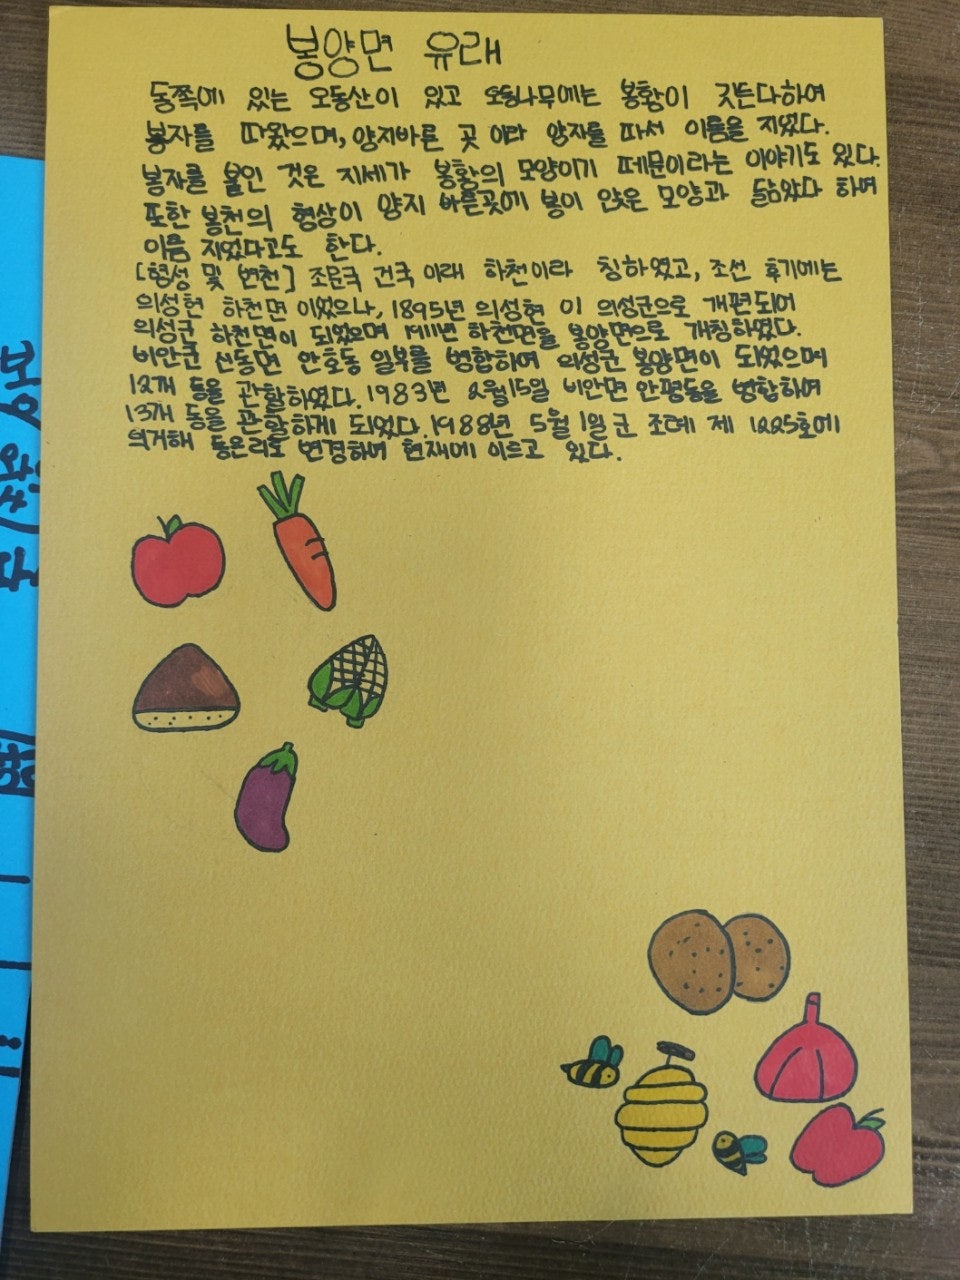 봉양면 유래
동쪽에 있는 오동산이 있고 오동나무에는 봉황이 깃든다하여
봉자를 따왔으며, 양지바른 곳 이라 양자를 따서 이름을 지었다.
봉자를 붙인 것은 지세가 봉황의 모양이기 때문이라는 이야기도 있다.
또한 봉천의 형상이 양지 바른곳에 봉이 앉은 모양과 닮았다 하여
이름 지었다고도 한다.
[형성 및 변천] 조문국 건국 이래 하천이라 칭하였고, 조선 후기에는
의성현 하천면 이었으나, 1895년 의성현 이 의성군으로 개편되어
의성군 하천면이 되었으며 1911년 하천면을 봉양면으로 개칭하였다.
비안군 신동면 안호동 일부를 병합하여 의성군 봉양면이 되었으며
12개 동을 관할하였다. 1983년 2월15일 비안면 안평동을 병합하여
13개 동을 관할하게 되었다. 1988년 5월 1일 군 조례 제 1225호에
의거해 동은리로 변경하여 현재에 이르고 있다.